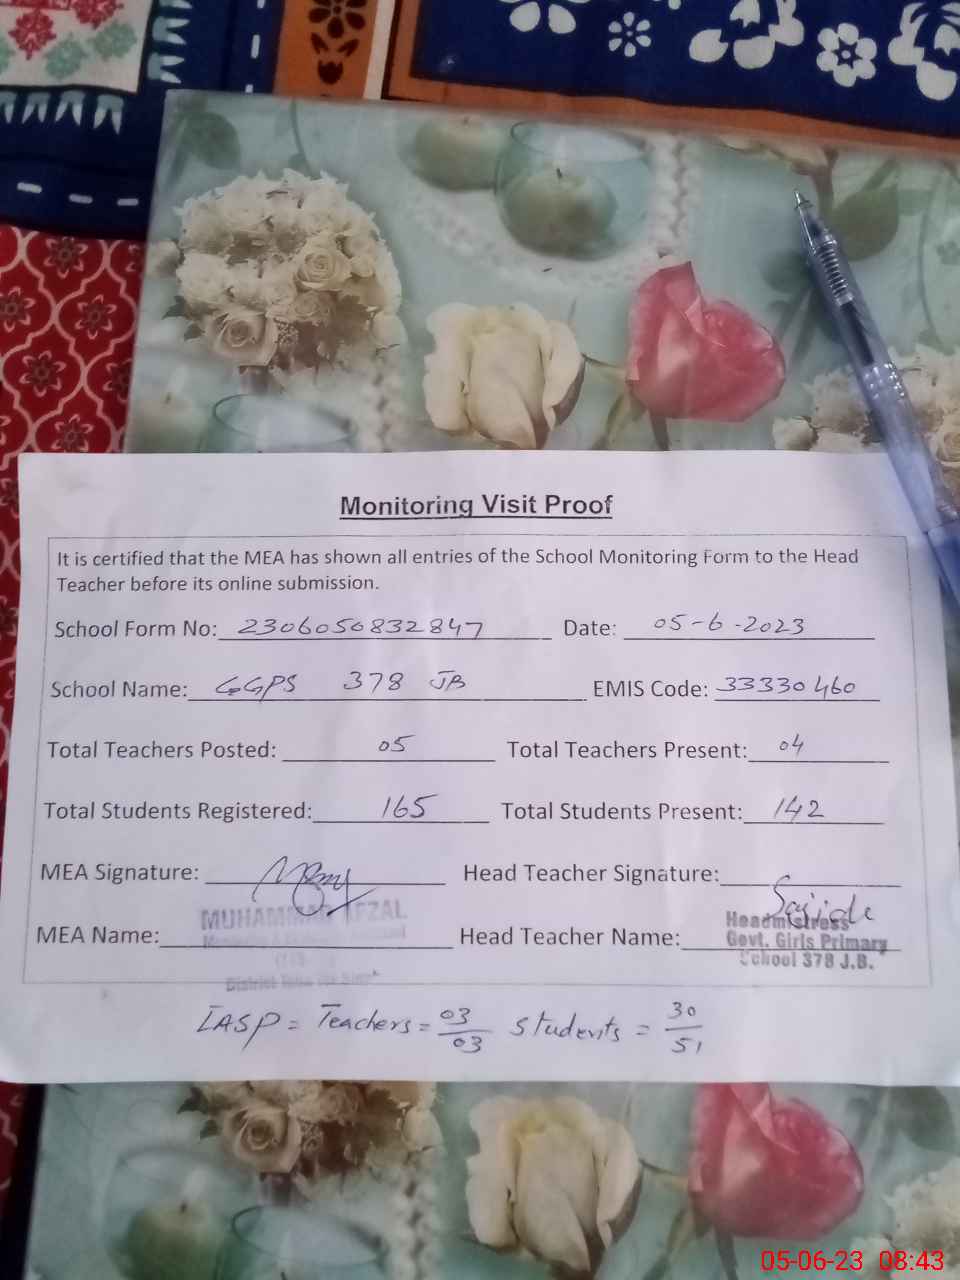 Monitoring Visit Proof
It is certified that the MEA has shown all entries of the School Monitoring Form to the Head
Teacher before its online submission.
School Form No: 2306050832847 Date: 05-6-2023
School Name: GGPS 378 JB EMIS Code: 33330460
Total Teachers Posted: 05 Total Teachers Present: 04
Total Students Registered: 165 Total Students Present: 142
MEA Signature: Head Teacher Signature: Sajida
MUHAMMAD AFZAL
MEA Name: Head Teacher Name:
Headmistress
Govt. Girls Primary
School 378 J.B.
District
IASP = Teachers = 03/03 students = 30/51
05-06-23 08:43